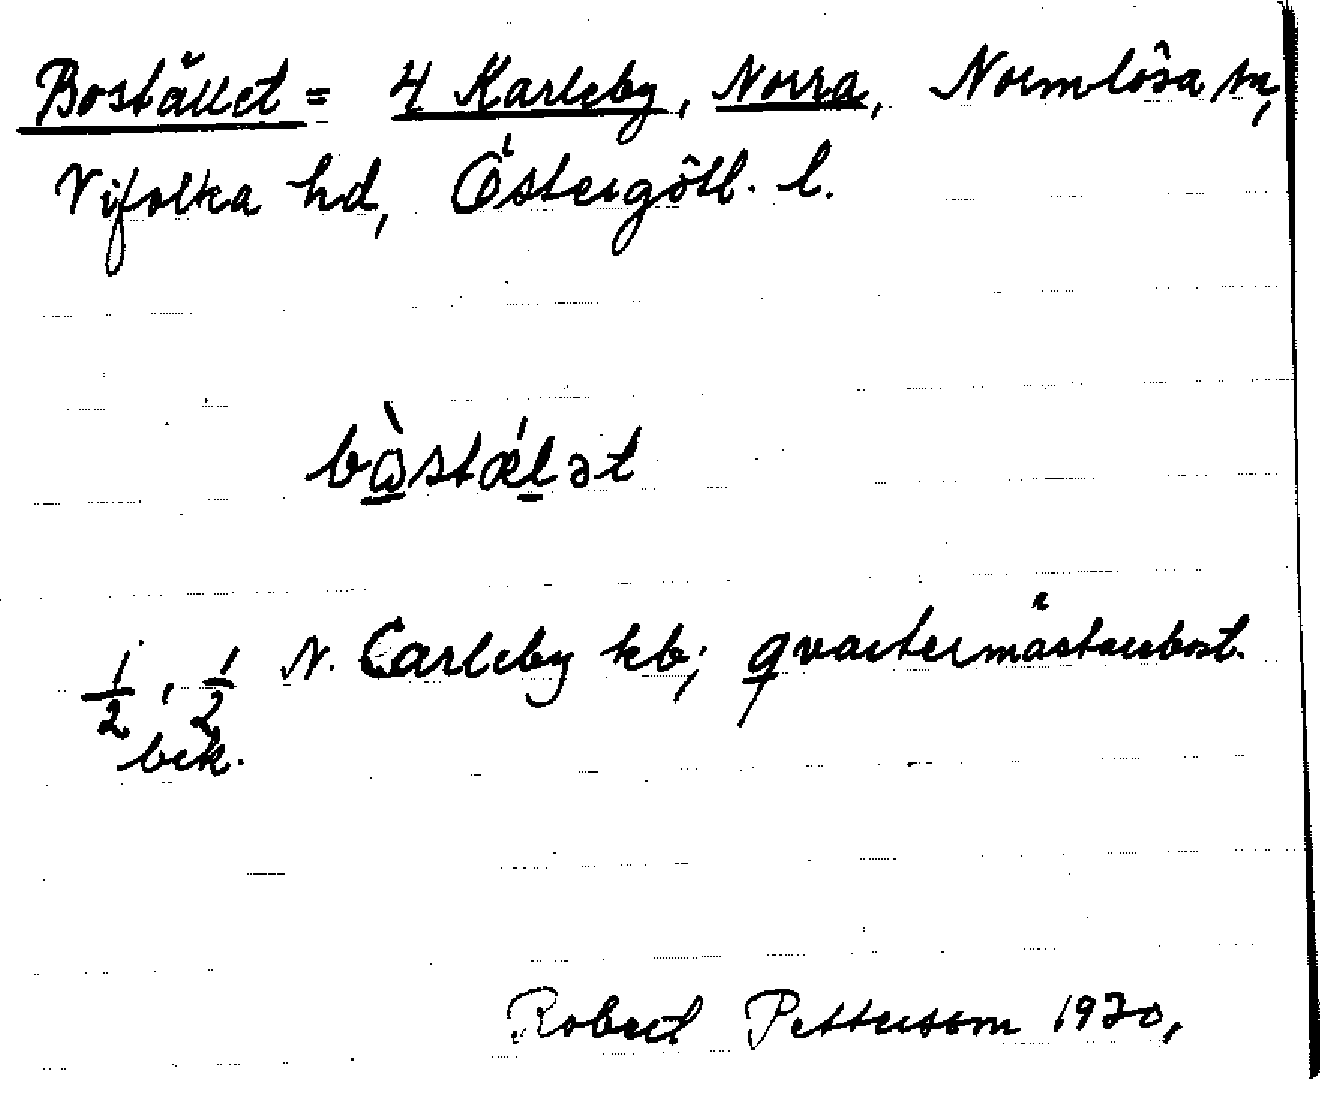 Bostället = 4 Karleby, Norra, Normlösa sn,
Vifolka hd, Östergötl. l.
bòstǽlət
1/2, 1/2 N. Carleby kb; qvartermästarebost.
bek.
Robert Pettersson 1930,